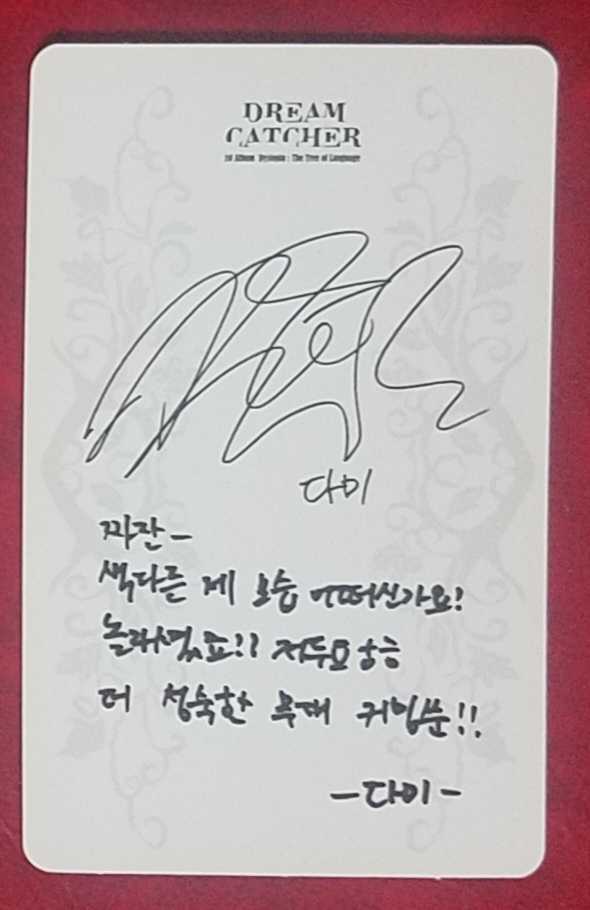 DREAM
CATCHER
1st Album Dystopia : The Tree of Language
다미
짜잔~
색다른 제 모습 어떠신가요!
놀라셨죠!! 저두요 ㅎㅎ
더 성숙한 무대 커밍쑨!!
-다미-